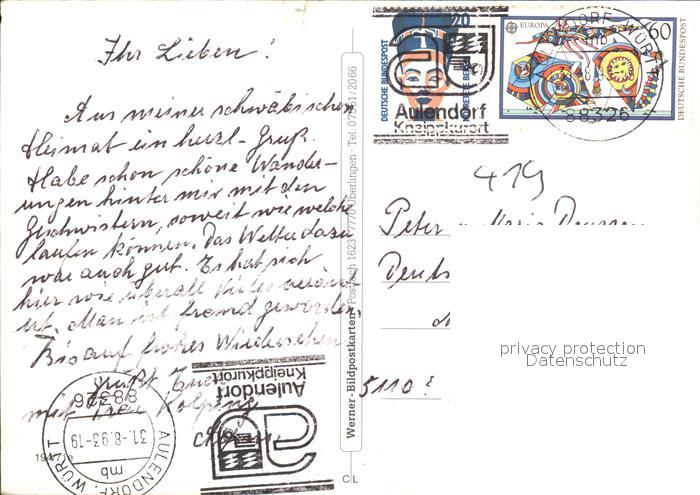 Ihr Lieben!
Aus meiner schwäbischen
Heimat ein herzl. Gruß.
Habe schon schöne Wander-
ungen hinter mir mit den
Geschwistern, soweit wie welche
laufen können. Das Wetter dazu
war auch gut. Es hat sich
hier wie überall Vieles veränd
ert. Man ist fremd geworden.
Bis auf frohes Wiedersehen
grüßt Euch
mit Treu Kolping
AULENDORF, WÜRTT
88326
31.-8.93-19
mb
Aulendorf
Kneippkurort
194/71
CL
Werner-Bildpostkarten · Postfach 1623 · 7770 Überlingen · Tel. 2066
20
DEUTSCHE BUNDESPOST
Aulendorf
Kneippkurort
EUROPA
60
DEUTSCHE BUNDESPOST
88326
419
Peter u. Maria
5110
privacy protection
Datenschutz